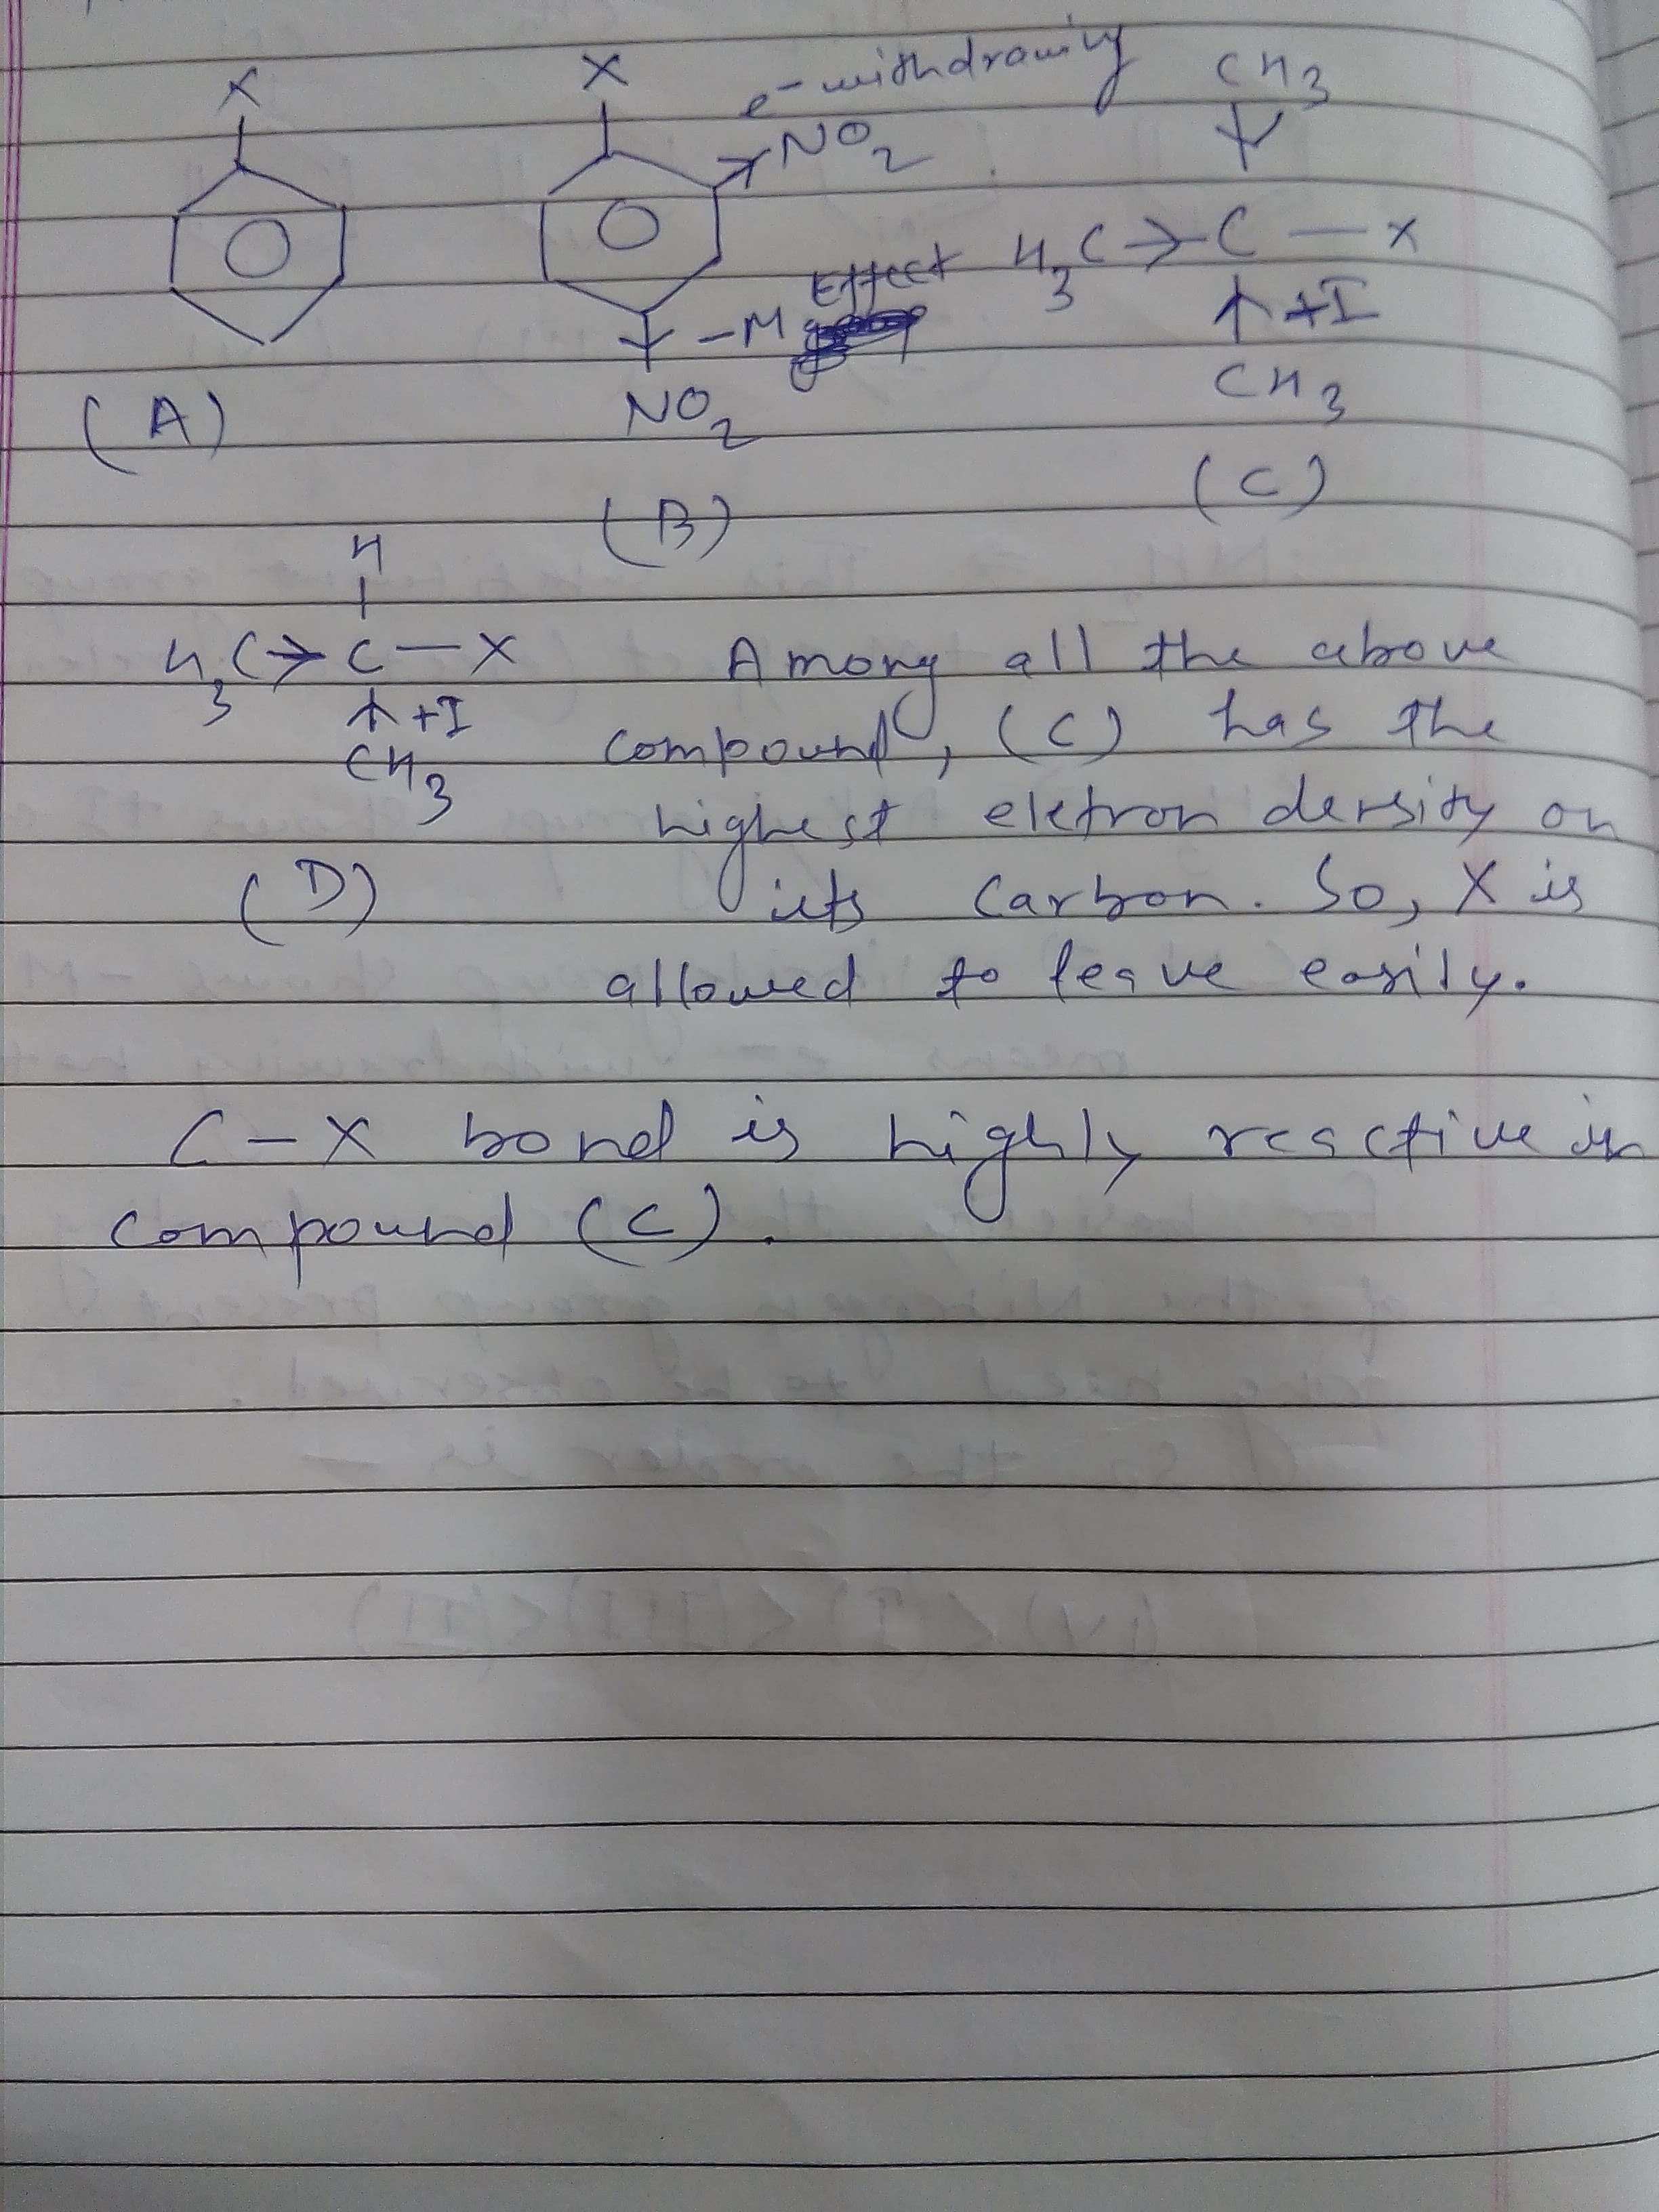 X
X
e- withdrawing
NO2
CH3
H3C → C — X
+I
CH3
-M Effect
NO2
(A)
(B)
(C)
H
H3C → C — X
+I
CH3
(D)
Among all the above
compound, (C) has the
highest eletron density on
its carbon. So, X is
allowed to leave easily.
C-X bond is highly reactive in
compound (C).